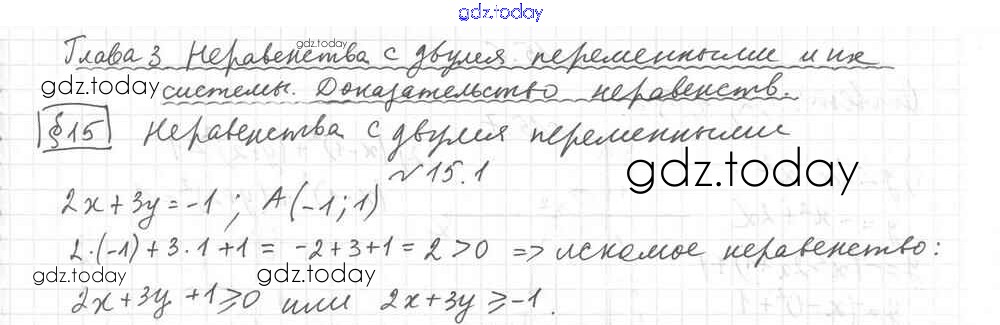 gdz.today
Глава 3 Неравенства с двумя переменными и их
gdz.today
gdz.today системы. Доказательство неравенств.
§15 Неравенства с двумя переменными
№15.1
gdz.today
2x+3y=-1; A(-1;1)
2·(-1)+3·1+1 = -2+3+1 = 2 >0 => искомое неравенство:
gdz.today gdz.today
2x+3y+1⩾0 или 2x+3y⩾-1.